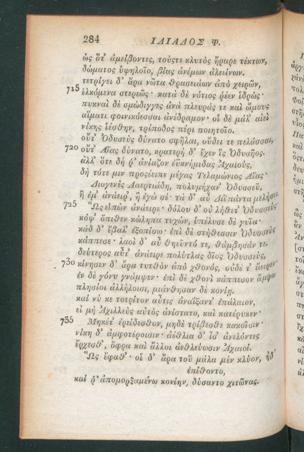 284 ΙΛΙΑΔΟΣ Ψ.
ὡς ὅτ᾽ ἀμείβοντες, τούςτε κλυτὸς ἤραρε τέκτων,
δώματος ὑψηλοῖο, βίας ἀνέμων ἀλεείνων.
τετρίγει δ᾽ ἄρα νῶτα θρασειάων ἀπὸ χειρῶν,
715 ἑλκόμενα στερεῶς· κατὰ δὲ νότιος ῥέεν ἱδρώς·
πυκναὶ δὲ σμώδιγγες ἀνὰ πλευράς τε καὶ ὤμους
αἵματι φοινικόεσσαι ἀνέδραμον· οἱ δὲ μάλ᾽ αἰεὶ
νίκης ἱέσθην, τρίποδος πέρι ποιητοῖο.
οὔτ᾽ Ὀδυσεὺς δύνατο σφῆλαι, οὔδει τε πελάσσαι,
720 οὔτ᾽ Αἴας δύνατο, κρατερὴ δ᾽ ἔχεν ἲς Ὀδυσῆος.
ἀλλ᾽ ὅτε δή ῥ᾽ ἀνίαζον ἐϋκνήμιδας Ἀχαιούς,
δὴ τότε μιν προςέειπε μέγας Τελαμώνιος Αἴας·
Διογενὲς Λαερτιάδη, πολυμήχαν᾽ Ὀδυσσεῦ,
ἤ ἔμ᾽ ἀνάειρ᾽, ἢ ἐγὼ σέ· τὰ δ᾽ αὖ Διῒ πάντα μελήσει.
725 Ὣς εἰπὼν ἀνάειρε· δόλου δ᾽ οὐ λήθετ᾽ Ὀδυσσεύς·
κόψ᾽ ὄπιθεν κώληπα τυχών, ὑπέλυσε δὲ γυῖα·
κὰδ δ᾽ ἔβαλ᾽ ἐξοπίσω· ἐπὶ δὲ στήθεσσιν Ὀδυσσεὺς
κάππεσε· λαοὶ δ᾽ αὖ θηεῦντό τε, θάμβησάν τε.
δεύτερος αὖτ᾽ ἀνάειρε πολύτλας δῖος Ὀδυσσεύς,
730 κίνησεν δ᾽ ἄρα τυτθὸν ἀπὸ χθονός, οὐδέ τ᾽ ἄειρεν·
ἐν δὲ γόνυ γνάμψεν· ἐπὶ δὲ χθονὶ κάππεσον ἄμφω
πλησίοι ἀλλήλοισι, μιάνθησαν δὲ κονίῃ.
καί νύ κε τοτρίτον αὖτις ἀναΐξαντ᾽ ἐπάλαιον,
εἰ μὴ Ἀχιλλεὺς αὐτὸς ἀνίστατο, καὶ κατέρυκεν·
735 Μηκέτ᾽ ἐρείδεσθον, μηδὲ τρίβεσθε κακοῖσιν·
νίκη δ᾽ ἀμφοτέροισιν· ἀέθλια δ᾽ ἶσ᾽ ἀνελόντες
ἔρχεσθ᾽, ὄφρα καὶ ἄλλοι ἀεθλεύωσιν Ἀχαιοί.
Ὣς ἔφαθ᾽· οἱ δ᾽ ἄρα τοῦ μάλα μὲν κλύον, ἠδ᾽
ἐπίθοντο,
καί ῥ᾽ ἀπομορξαμένω κονίην, δύσαντο χιτῶνας.